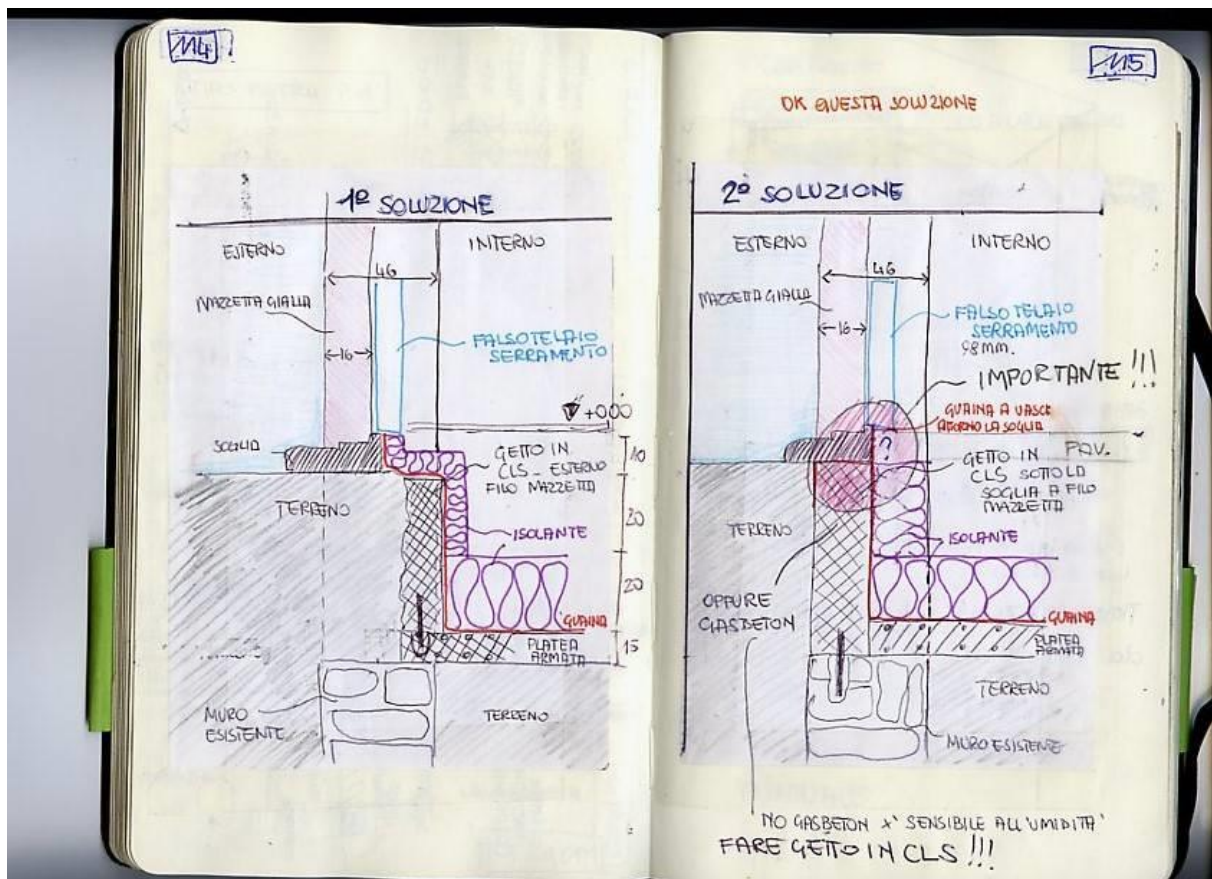 114
1ª SOLUZIONE
ESTERNO
INTERNO
46
MAZZETTA GIALLA
16
FALSO TELAIO
SERRAMENTO
+000
SOGLIA
GETTO IN
CLS - ESTERNO
FILO MAZZETTA
10
TERRENO
20
ISOLANTE
20
GUAINA
PLATEA
ARMATA
15
MURO
ESISTENTE
TERRENO
115
OK QUESTA SOLUZIONE
2ª SOLUZIONE
ESTERNO
INTERNO
46
MAZZETTA GIALLA
16
FALSO TELAIO
SERRAMENTO
98mm.
IMPORTANTE !!!
GUAINA A VASCA
ATTORNO LA SOGLIA
PAV.
GETTO IN
CLS SOTTO LA
SOGLIA A FILO
MAZZETTA
TERRENO
ISOLANTE
OPPURE
GASBETON
GUAINA
PLATEA
ARMATA
TERRENO
MURO ESISTENTE
NO GASBETON X' SENSIBILE ALL'UMIDITA'
FARE GETTO IN CLS !!!